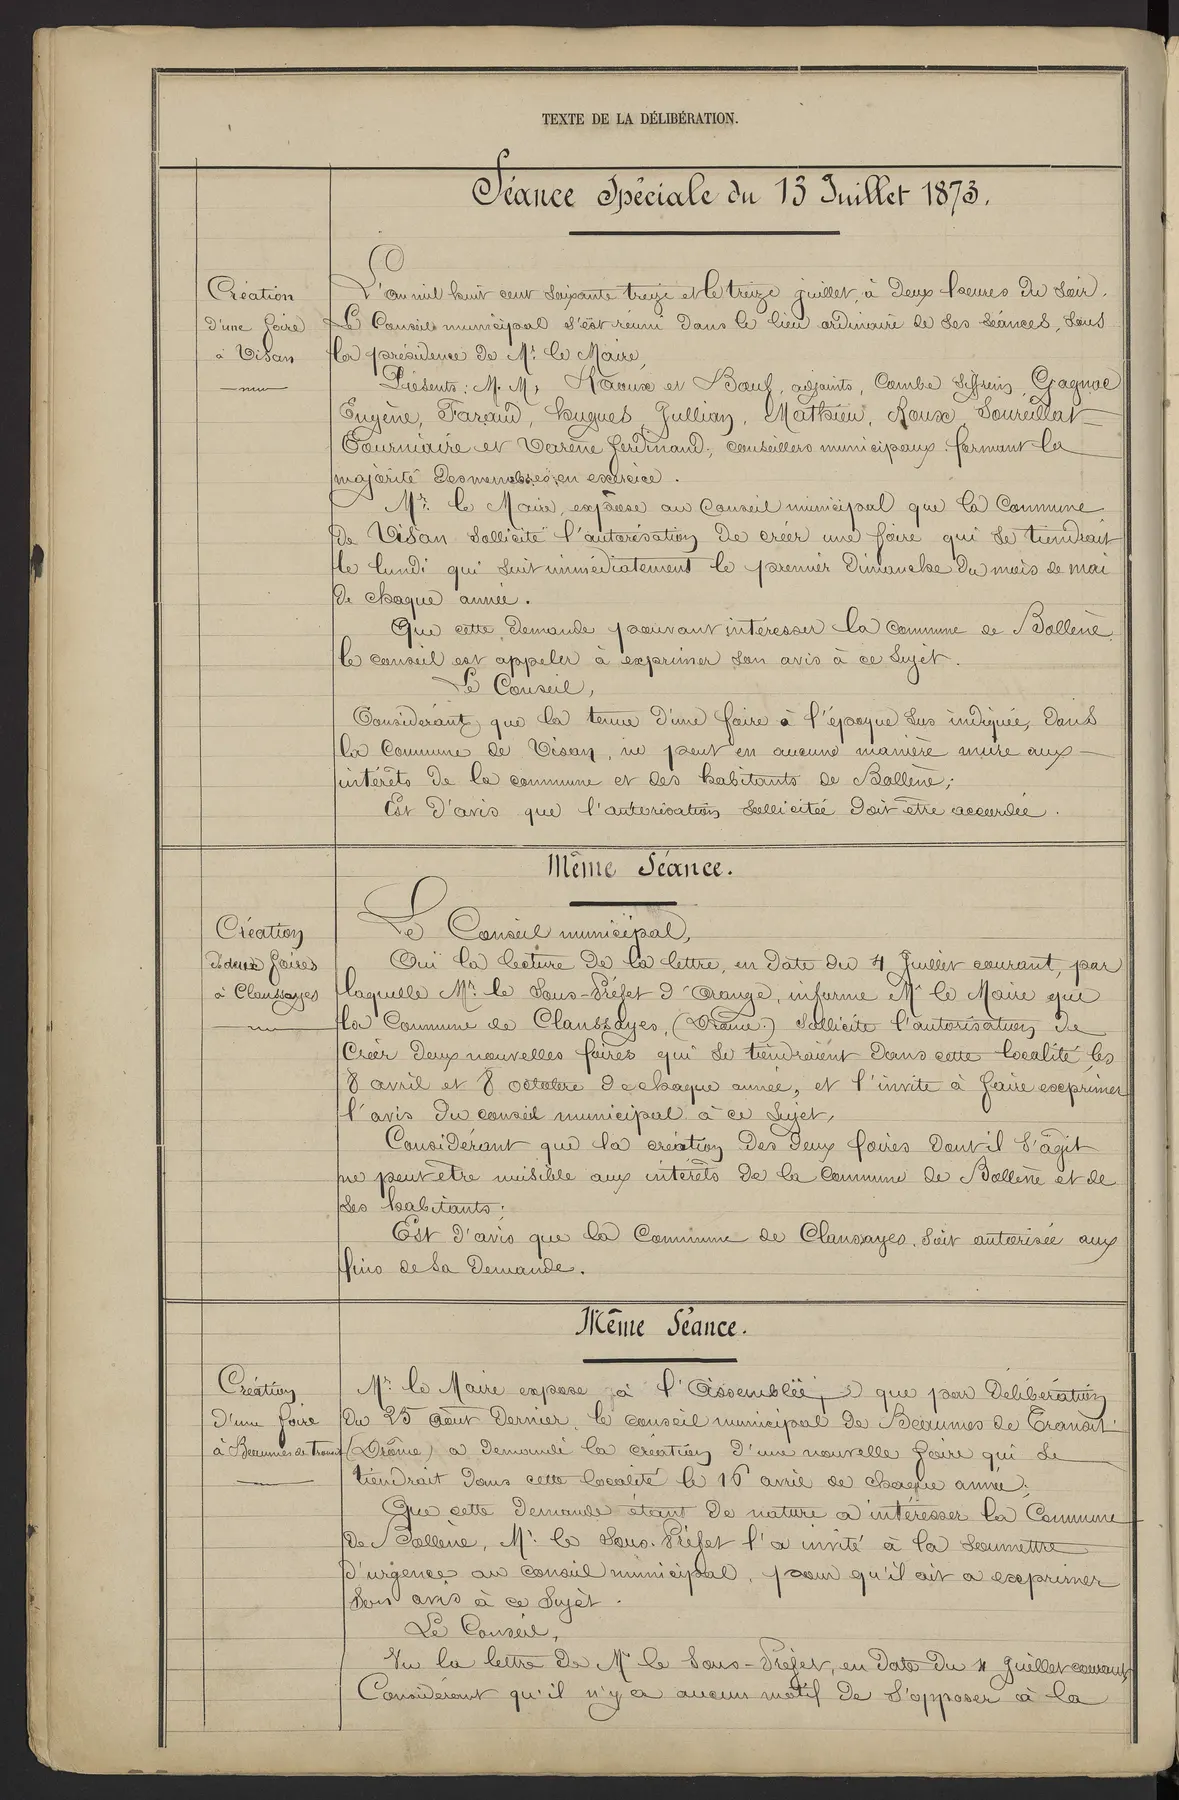 TEXTE DE LA DÉLIBÉRATION.
Séance Spéciale du 13 Juillet 1873.
Création
d'une foire
à Visan
L'an mil huit cent soixante treize et le treize juillet, à deux heures du soir.
Le Conseil municipal s'est réuni dans le lieu ordinaire de ses séances, sous
la présidence de Mr. le Maire,
Présents: M. M. et Bœuf, adjoints, Combe Siffrein, Gagnac
Eugène, Faraud, Hugues, Jullian, Mathieu, Roux, Soureillat
Fourniaire et Varène Ferdinand, conseillers municipaux formant la
majorité des membres en exercice.
Mr. le Maire, expose au Conseil municipal que la Commune
de Visan sollicite l'autorisation de créer une foire qui se tiendrait
le lundi qui suit immédiatement le premier Dimanche du mois de mai
de chaque année.
Que cette demande pouvant intéresser la Commune de Bollène,
le conseil est appeler à exprimer son avis à ce sujet.
Le Conseil,
Considérant que la tenue d'une foire à l'époque sus indiquée, dans
la Commune de Visan, ne peut en aucune manière nuire aux
intérêts de la commune et des habitants de Bollène;
Est d'avis que l'autorisation sollicitée doit être accordée.
Même Séance.
Création
de deux foires
à Clansayes
Le Conseil municipal,
Oui la lecture de la lettre, en date du 4 Juillet courant, par
laquelle Mr. le Sous-Préfet d'Orange, informe Mr le Maire que
la Commune de Clansayes, (Drôme.) sollicite l'autorisation de
Créer deux nouvelles foires qui se tiendraient dans cette localité les
8 avril et 8 octobre de chaque année, et l'invite à faire exprimer
l'avis du conseil municipal à ce sujet,
Considérant que la création des deux foires dont il s'agit
ne peut être nuisible aux intérêts de la Commune de Bollène et de
ses habitants;
Est d'avis que la Commune de Clansayes, soit autorisée aux
fins de sa demande.
Même Séance.
Création
d'une foire
à Beaumes de Transit
Mr. le Maire expose à l'Assemblée, que par délibération
du 25 Août dernier, le conseil municipal de Beaumes de Transit
(Drôme) a demandé la création d'une nouvelle foire qui se
tiendrait dans cette localité le 16 avril de chaque année;
Que cette demande étant de nature a intéresser la Commune
de Bollène, Mr. le Sous-Préfet l'a invité à la soumettre
d'urgence au conseil municipal, pour qu'il ait a exprimer
son avis à ce sujet.
Le Conseil,
Vu la lettre de Mr le Sous-Préfet, en date du 4 Juillet courant,
Considérant qu'il n'y a aucun motif de s'opposer à la